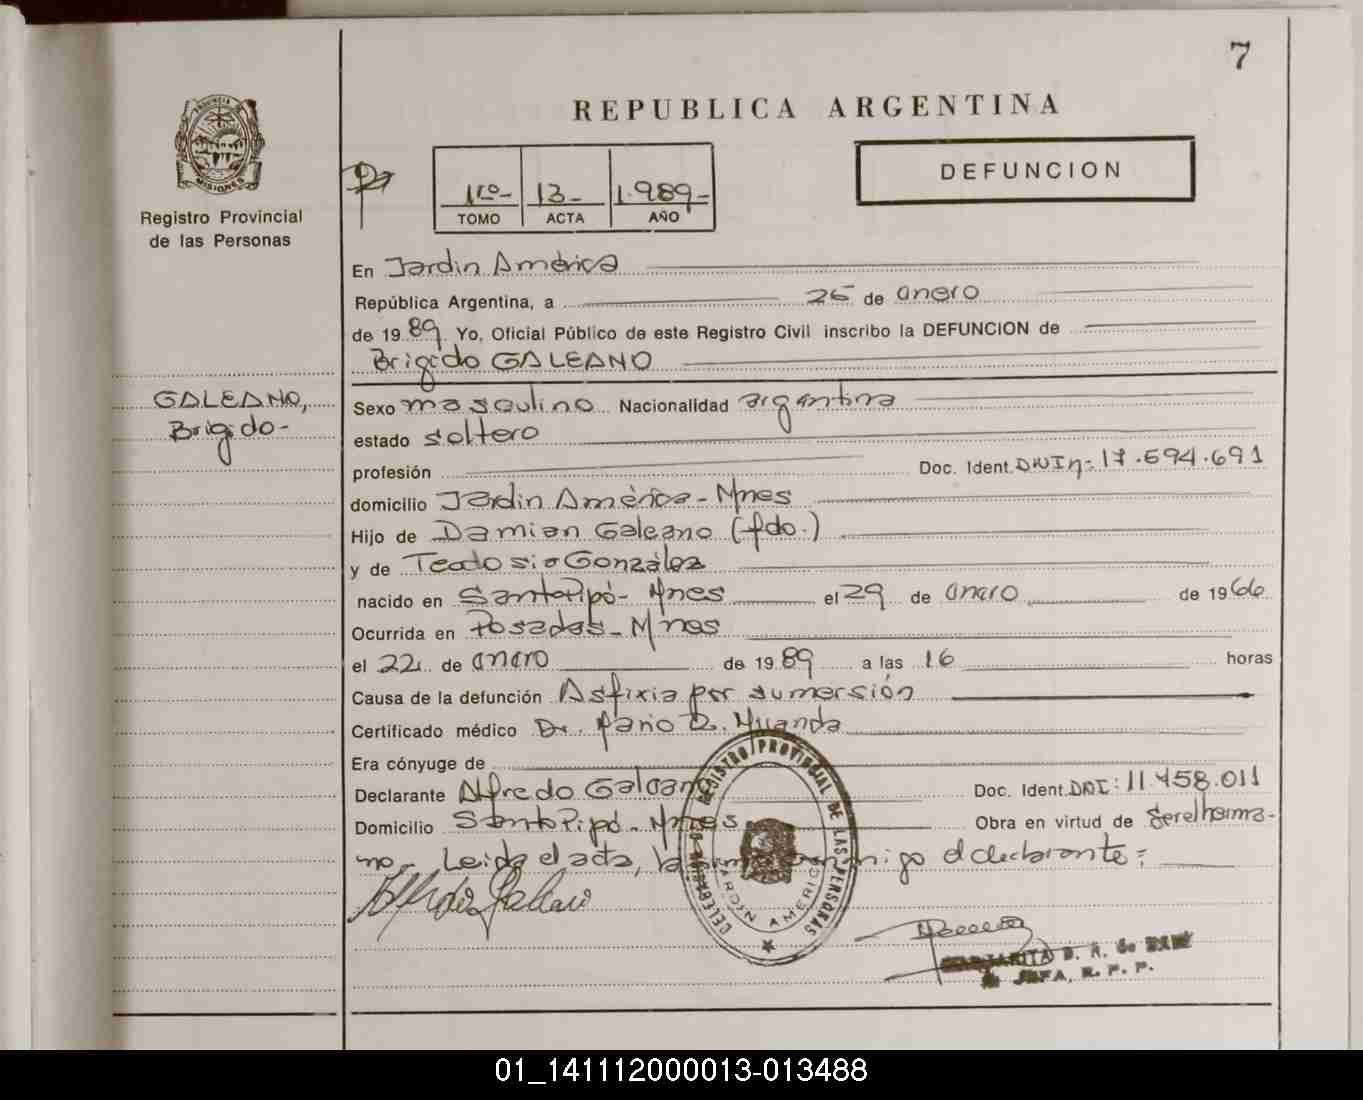 7
REPUBLICA ARGENTINA
PROVINCIA DE
MISIONES
Registro Provincial
de las Personas
1ro- 13- 1.989-
TOMO ACTA AÑO
DEFUNCION
En Jardin América
República Argentina, a 25 de enero
de 1989 Yo, Oficial Público de este Registro Civil inscribo la DEFUNCION de
Brigido GALEANO
GALEANO,
Brigido-
Sexo masculino Nacionalidad argentina
estado soltero
profesión Doc. Ident. DNI nº: 17.594.691
domicilio Jardin América - Mnes
Hijo de Damian Galeano (fdo.)
y de Teodosia González
nacido en Santo Pipó - Mnes el 29 de enero de 1966
Ocurrida en Posadas - Mnes
el 22 de enero de 1989 a las 16 horas
Causa de la defunción Asfixia por sumersión
Certificado médico Dr. Mario R.
Era cónyuge de
Declarante Alfredo Galeano Doc. Ident. DNI: 11.458.011
Domicilio Santo Pipó - Mnes Obra en virtud de Ser el herma-
no - Leida el acta, la firma conmigo el declarante:
REGISTRO PROVINCIAL DE LAS PERSONAS
JARDIN AMERICA
MARGARITA D. R. de
JEFA, R. P. P.
01_141112000013-013488